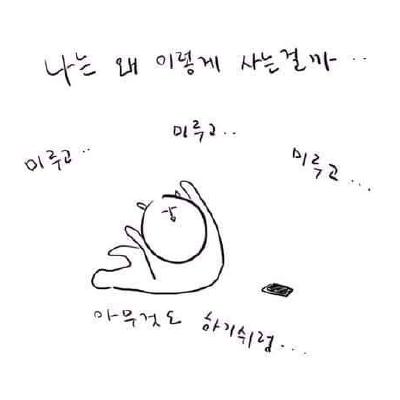 나는 왜 이렇게 사는걸까..
미루고..
미루고..
미루고...
아무것도 하기쉬렁...